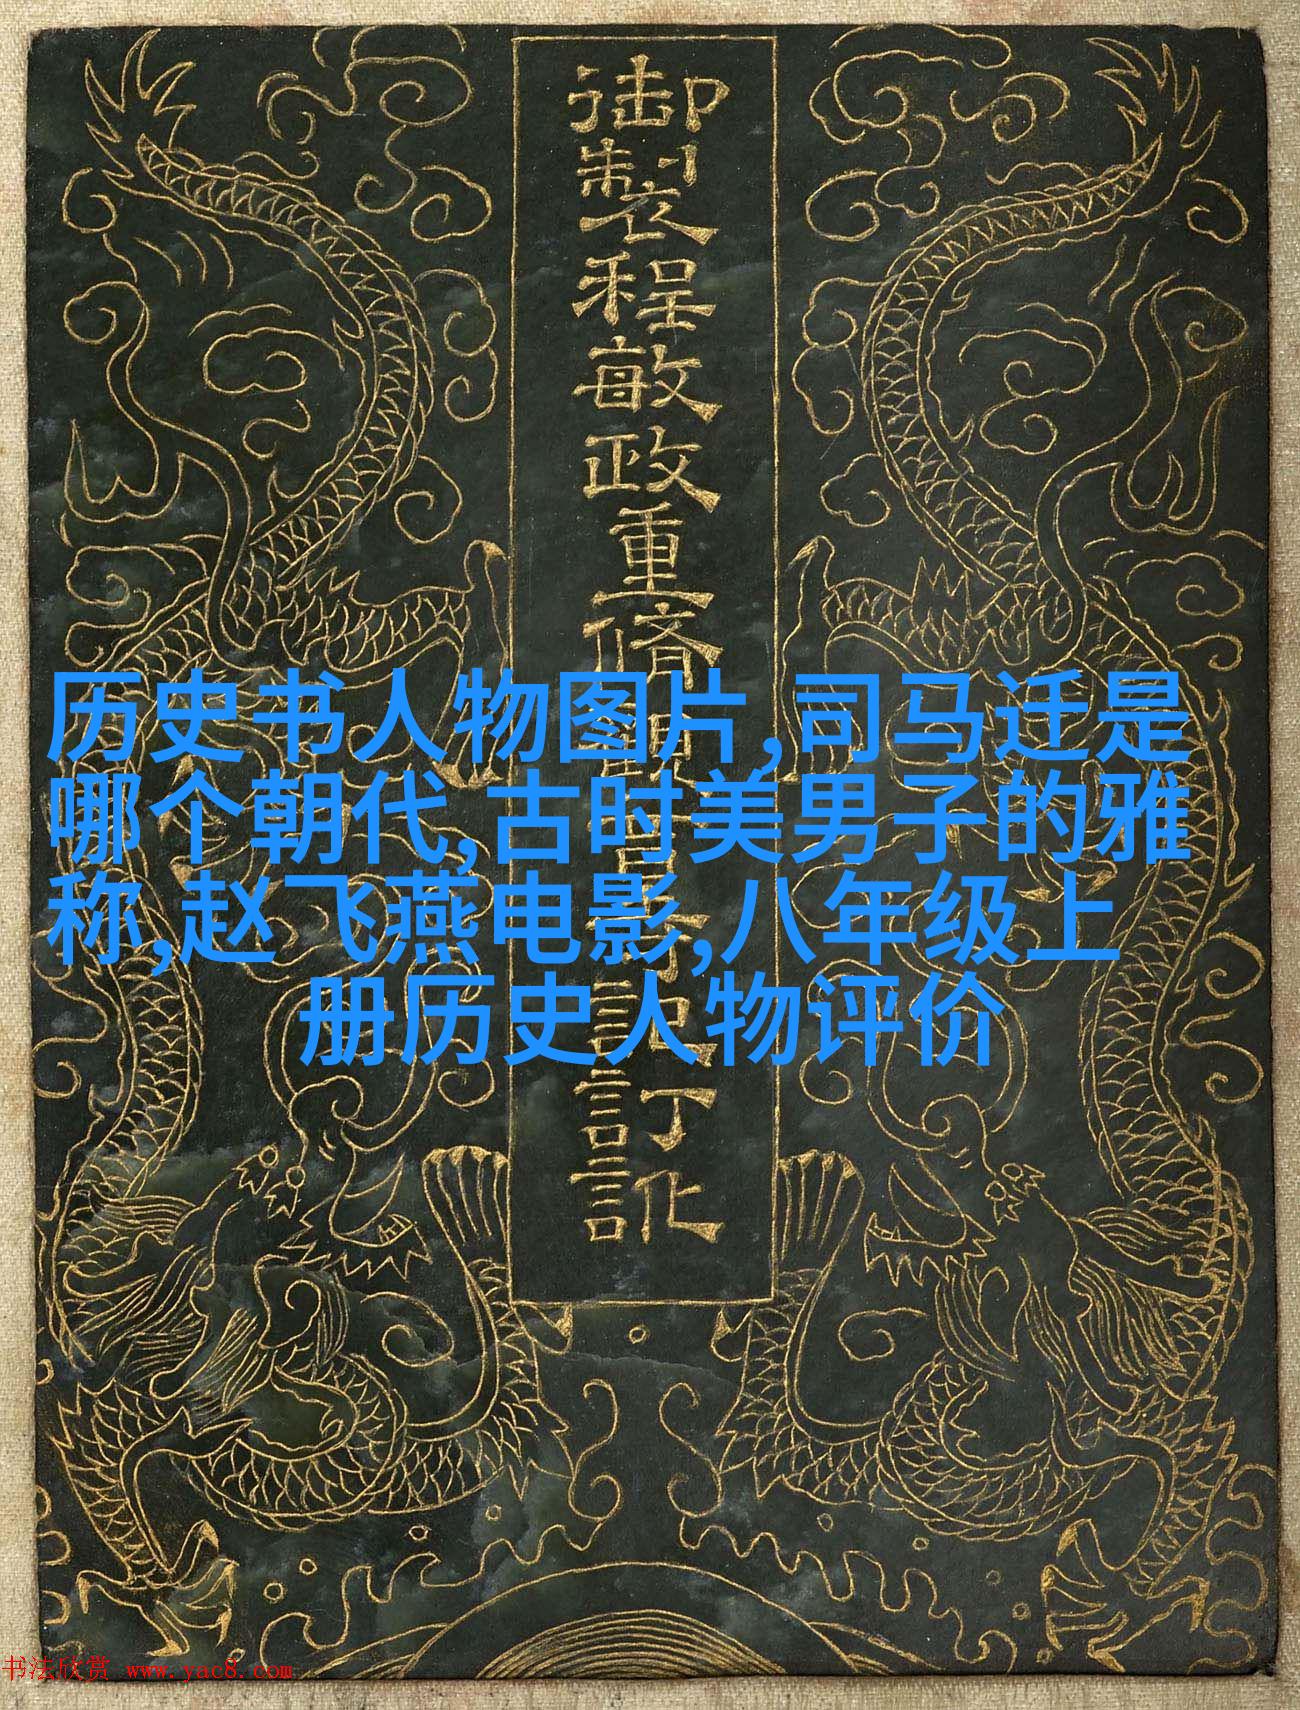 御製程敏政重脩訂訛
历史书人物图片,司马迁是
哪个朝代,古时美男子的雅
称,赵飞燕电影,八年级上
册历史人物评价
书法欣赏 www.yac8.com